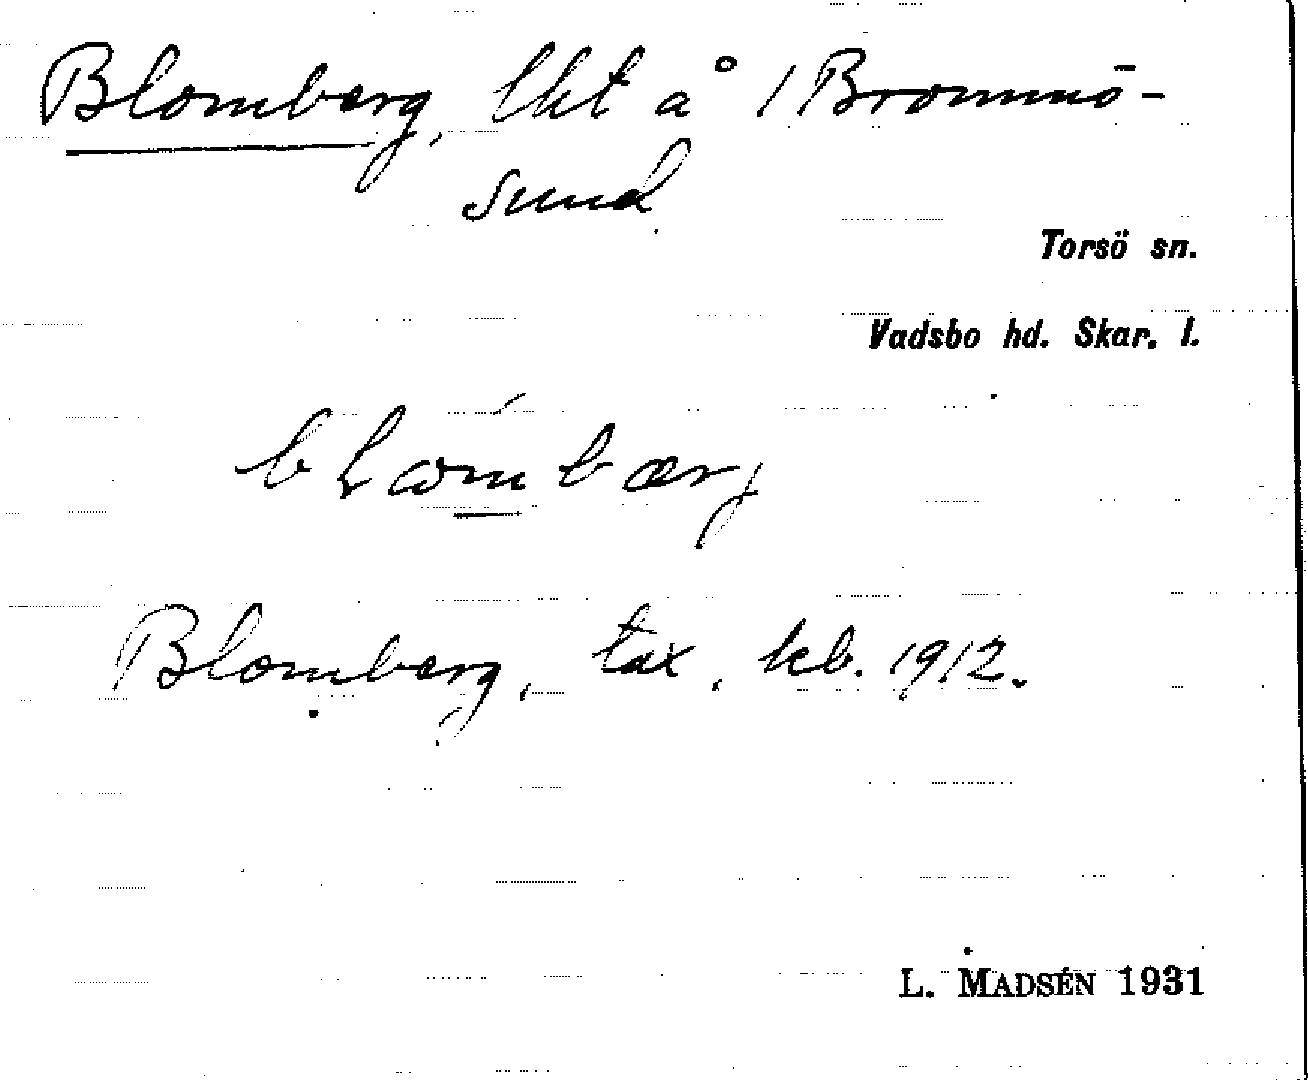 Blomberg, lht å 1 Bromnö-
sund.
Torsö sn.
Vadsbo hd. Skar. l.
Blomberg, tax. kb. 1912.
L. MADSÉN 1931